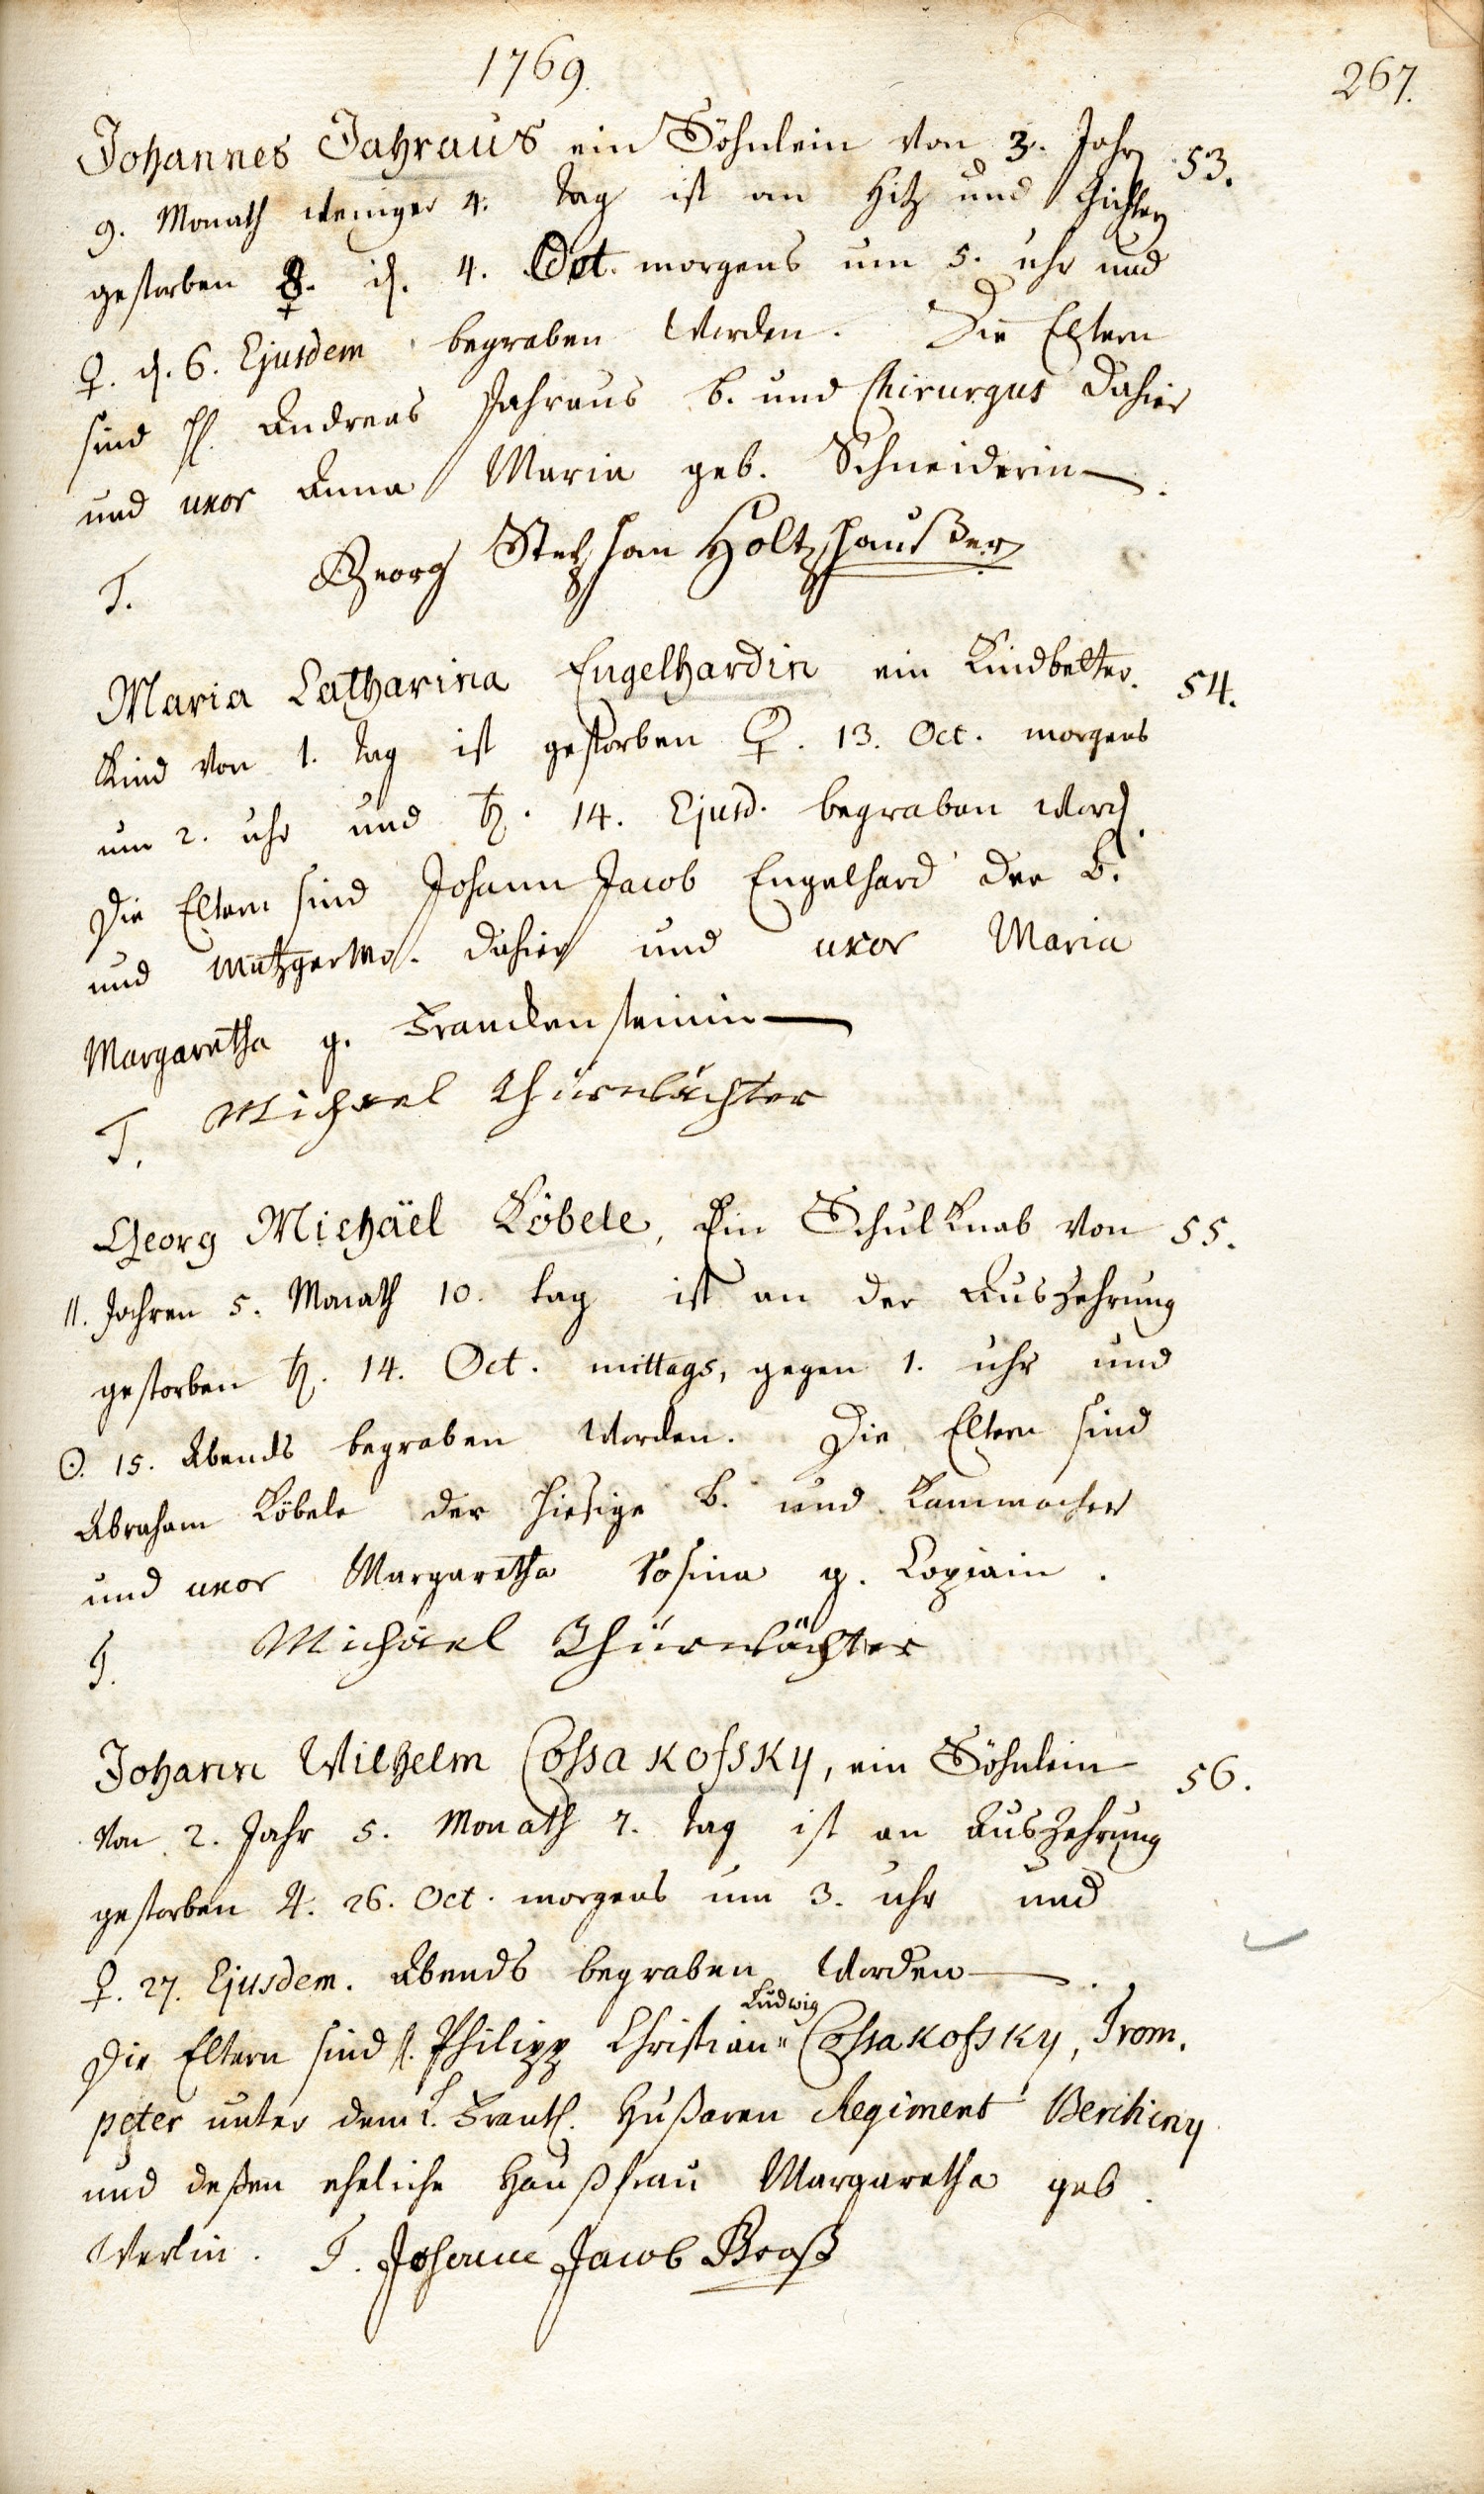 1769.
267.
Johannes Jahraus ein Söhnlein von 3. Jahr 53.
9. Monath weniger 4. tag ist an Hitz und Gichter
gestorben ☿. d. 4. Oct. morgens um 5. uhr und
♀. d. 6. Ejusdem begraben worden. Die Eltern
sind H. Andreas Jahraus b. und Chirurgus dahier
und uxor Anna Maria geb. Schneiderin.
T. Georg Stephan Holtzhaußer
Maria Catharina Engelhardin ein Kindbetter. 54.
Kind von 1. tag ist gestorben ♀. 13. Oct. morgens
um 2. uhr und ♄. 14. Ejusd. begraben word.
Die Eltern sind Johann Jacob Engelhard der b.
und Metzger dahier und uxor Maria
Margaretha g. Franckensteinin
T. Michael Thürwächter
Georg Michäel Köbele, Ein Schulknab von 55.
11. Jahren 5. Monath 10. tag ist an der Auszehrung
gestorben ♄. 14. Oct. mittags, gegen 1. uhr und
☉. 15. Abends begraben worden. Die Eltern sind
Abraham Köbele der hiesige b. und Kammacher
und uxor Margaretha Rosina g.
T. Michäel Thürwächter
Johann Wilhelm Cossakofsky, ein Söhnlein 56.
von 2. Jahr 5. Monath 7. tag ist an Auszehrung
gestorben ♃. 26. Oct. morgens um 3. uhr und
♀. 27. Ejusdem. Abends begraben worden.
Ludwig
Die Eltern sind H. Philipp Christian Cossakofsky, Trom.
peter unter dem K. Frantz. Hußaren Regiment Berchiny
und deßen eheliche Haußfrau Margaretha geb.
T. Johann Jacob Broß